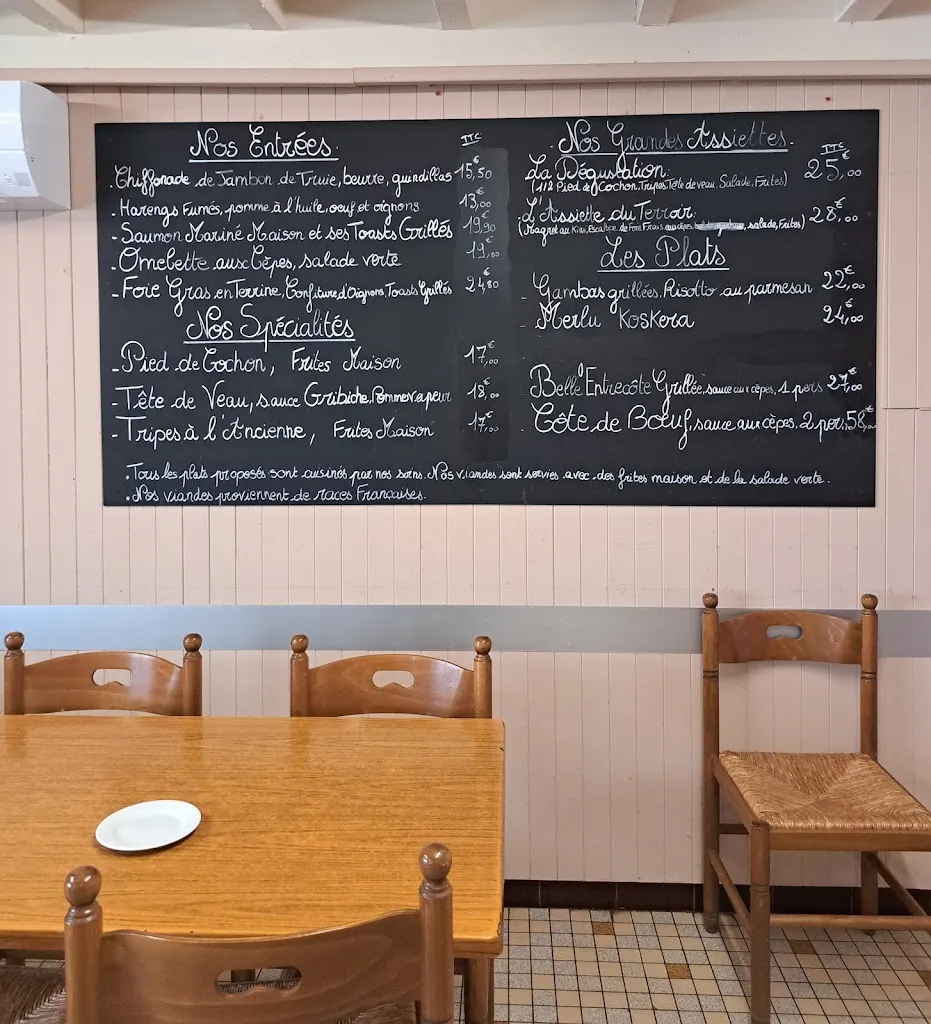 Nos Entrées
TTC
- Chiffonade de Jambon de Truie, beurre, guindillas 15,50€
- Harengs Fumés, pomme à l'huile, oeuf et oignons 13,00€
- Saumon Mariné Maison et ses Toasts Grillés 19,90€
- Omelette aux Cèpes, salade verte 19,00€
- Foie Gras en Terrine, Confiture d'Oignons, Toasts Grillés 24,80€
Nos Spécialités
- Pied de Cochon, Frites Maison 17,00€
- Tête de Veau, sauce Gribiche, Pomme vapeur 18,00€
- Tripes à l'Ancienne, Frites Maison 17,00€
Nos Grandes Assiettes
TTC
La Dégustation: 25,00€
(1/2 Pied de Cochon, Tripes, Tête de veau, Salade, Frites)
L'Assiette du Terroir: 28,00€
(Magret au Kiwi, Escalope de Foie Frais aux cèpes, salade, Frites)
Les Plats
- Gambas grillées, Risotto au parmesan 22,00€
- Merlu Koskera 24,00€
Belle Entrecôte Grillée, sauce aux cèpes, 1 pers 27,00€
Côte de Bœuf, sauce aux cèpes, 2 pers, 58,00€
• Tous les plats proposés sont cuisinés par nos soins. Nos viandes sont servies avec des frites maison et de la salade verte.
• Nos viandes proviennent de races Françaises.